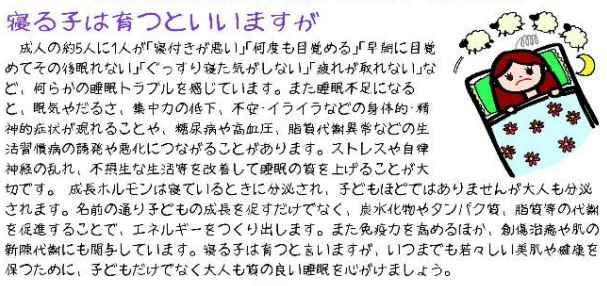 寝る子は育つといいますが
成人の約5人に1人が「寝付きが悪い」「何度も目覚める」「早朝に目覚
めてその後眠れない」「ぐっすり寝た気がしない」「疲れが取れない」な
ど、何らかの睡眠トラブルを感じています。また睡眠不足になる
と、眠気やだるさ、集中力の低下、不安・イライラなどの身体的・精
神的症状が現れることや、糖尿病や高血圧、脂質代謝異常などの生
活習慣病の誘発や悪化につながることがあります。ストレスや自律
神経の乱れ、不摂生な生活等を改善して睡眠の質を上げることが大
切です。 成長ホルモンは寝ているときに分泌され、子どもほどではありませんが大人も分泌
されます。名前の通り子どもの成長を促すだけでなく、炭水化物やタンパク質、脂質等の代謝
を促進することで、エネルギーをつくり出します。また免疫力を高めるほか、創傷治癒や肌の
新陳代謝にも関与しています。寝る子は育つと言いますが、いつまでも若々しい美肌や健康を
保つために、子どもだけでなく大人も質の良い睡眠を心がけましょう。